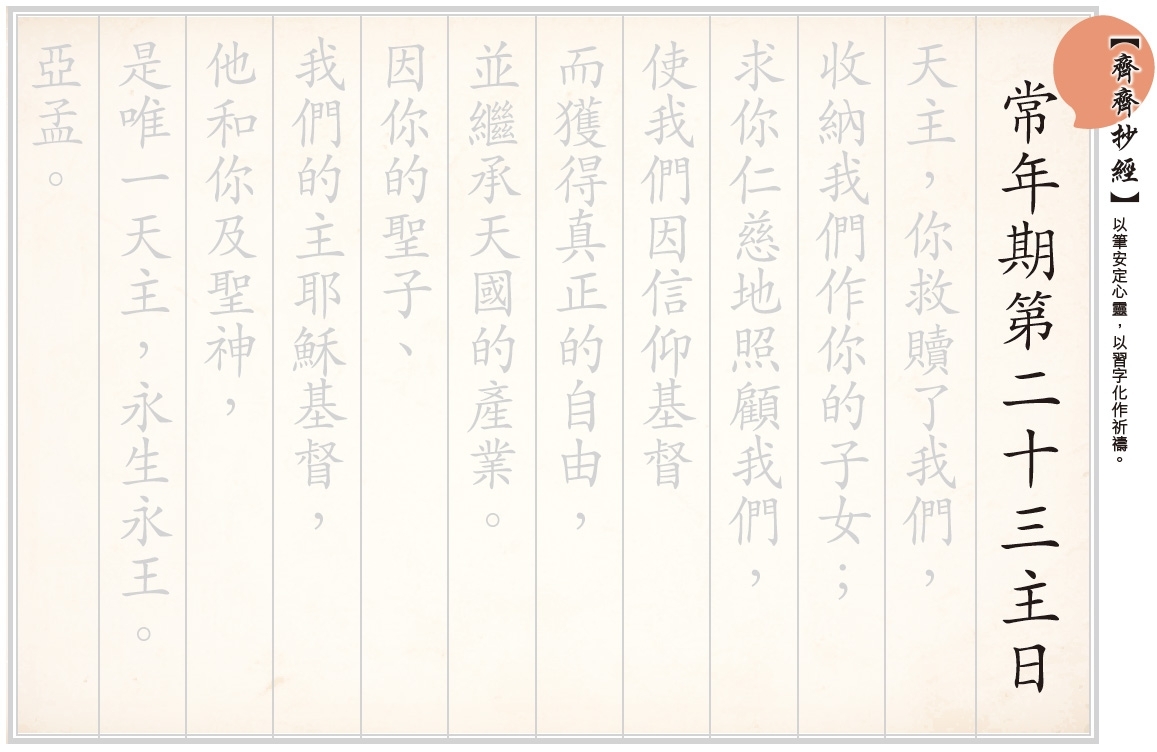 【齊齊抄經】以筆安定心靈，以習字化作祈禱。
常年期第二十三主日
天主，你救贖了我們，
收納我們作你的子女；
求你仁慈地照顧我們，
使我們因信仰基督
而獲得真正的自由，
並繼承天國的產業。
因你的聖子、
我們的主耶穌基督，
他和你及聖神，
是唯一天主，永生永王。
亞孟。